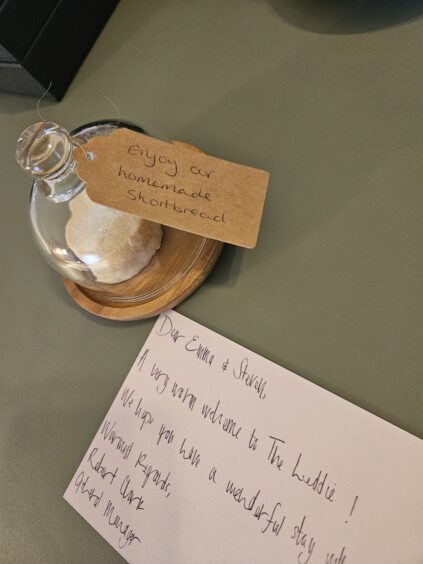 Enjoy our
homemade
Shortbread
Dear Emma & Steven,
A very warm welcome to The Luddie !
We hope you have a wonderful stay with
Warmest Regards,
Robert Clark
General Manager